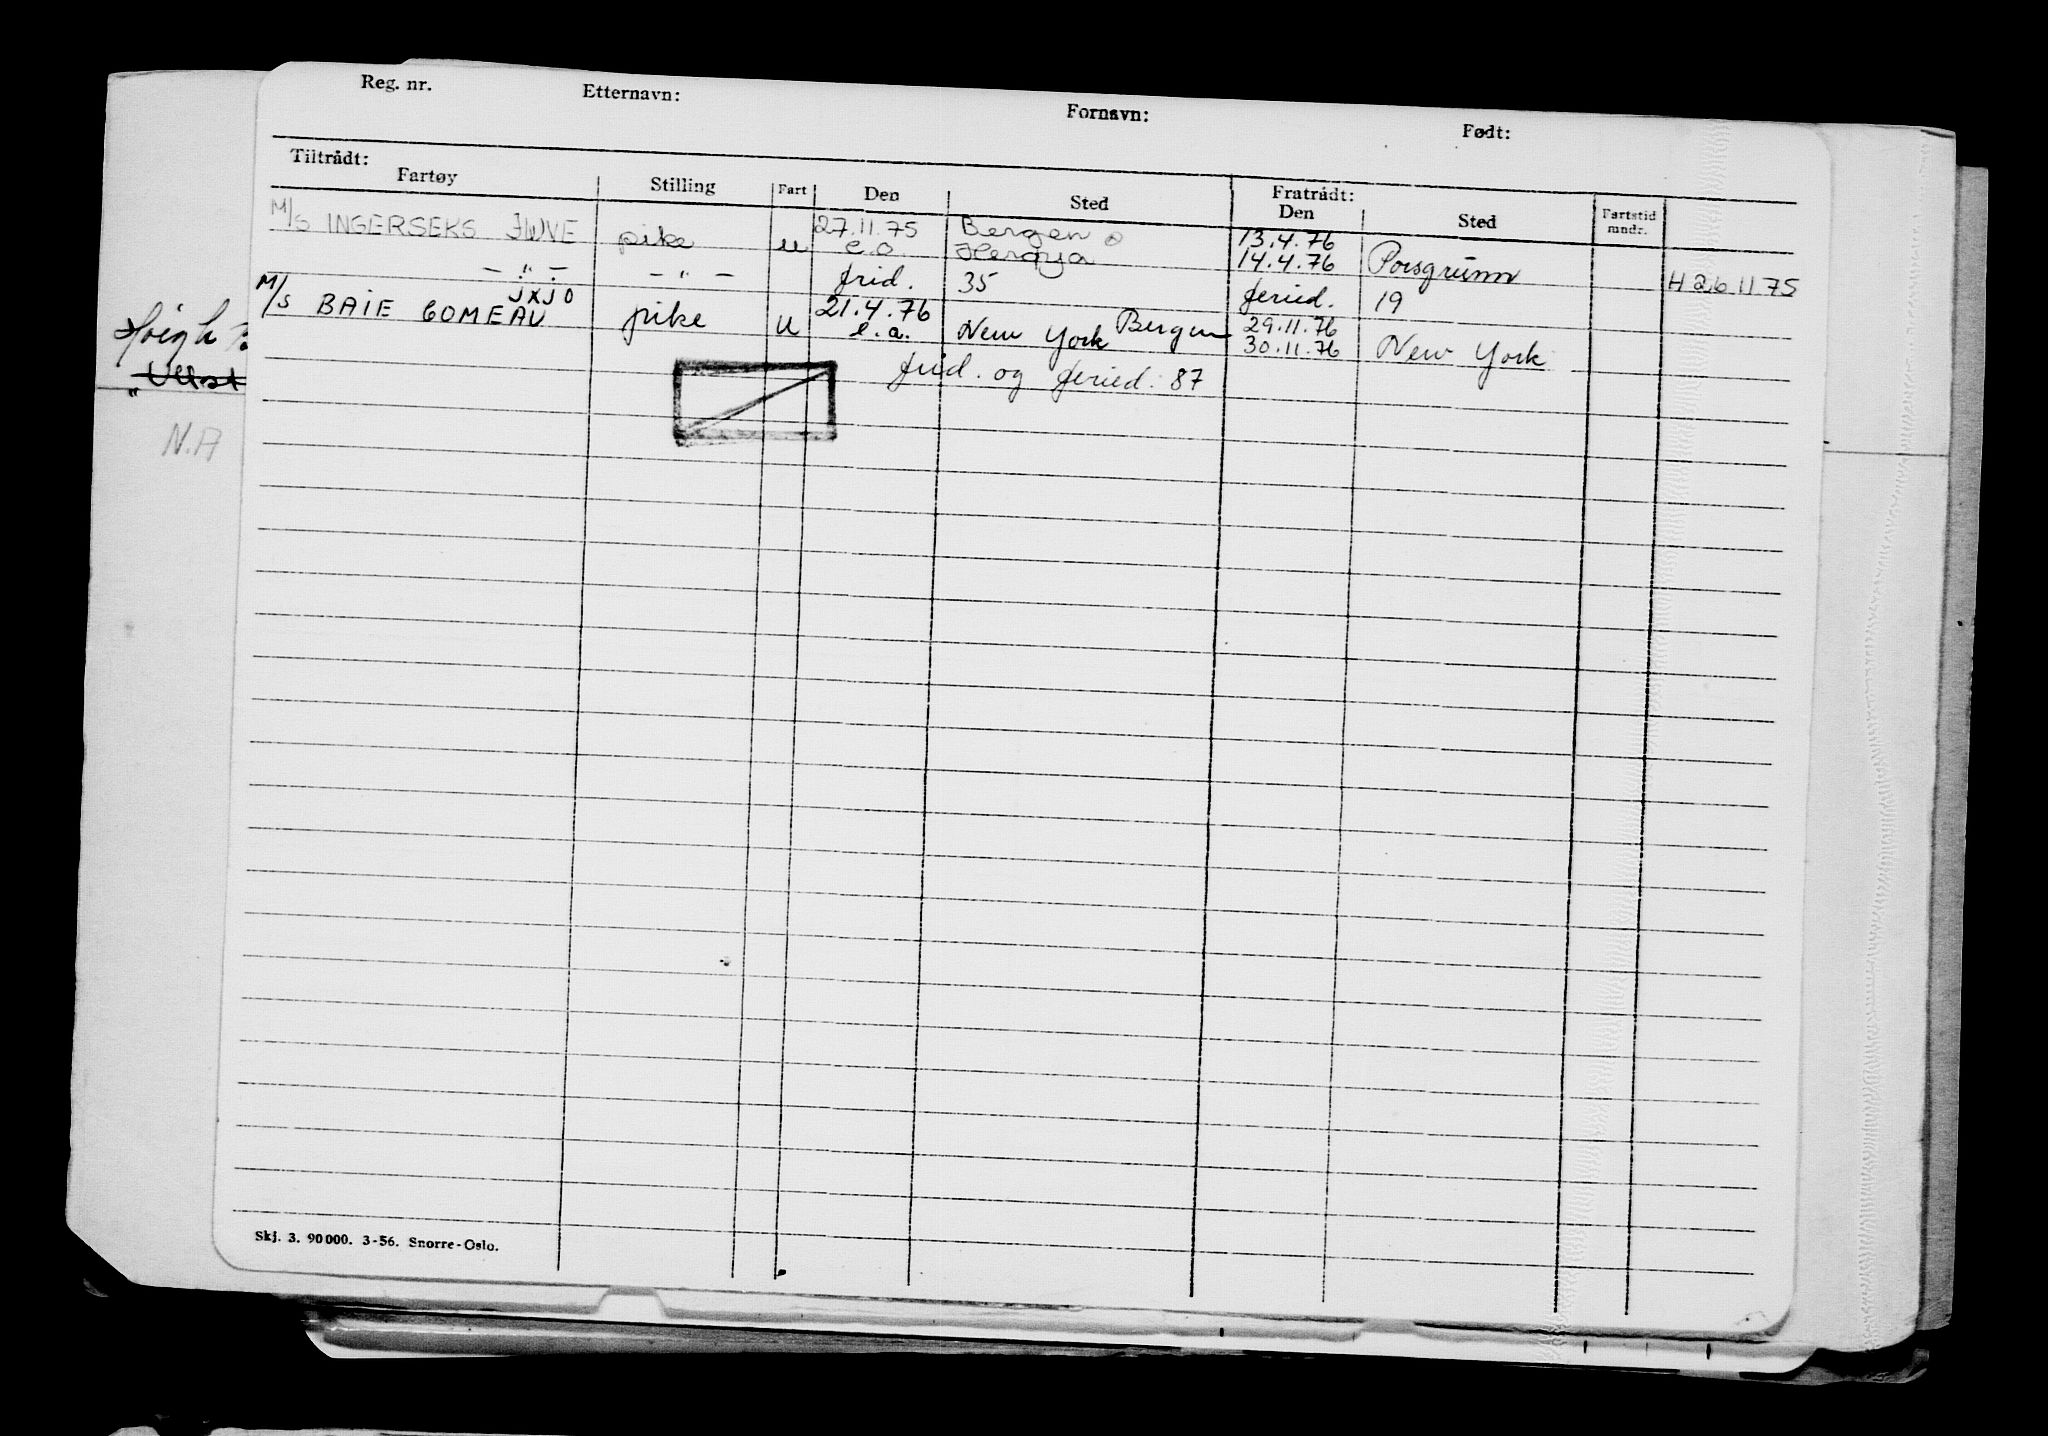 Reg. nr. Etternavn: Fornavn: Født:
Tiltrådt: Fratrådt:
Fartøy Stilling Fart Den Sted Den Sted Fartstid mndr.
M/S INGERSEKS JWVE pike u 27.11.75 Bergen 13.4.76
e.a. Herøya 14.4.76 Porsgrunn H 26 11 75
— " — — " — frid. 35 feried. 19
jxjo
M/S BAIE COMEAU pike u 21.4.76 Bergen 29.11.76
e.a. New York 30.11.76 New York
frid. og feried. 87
Høigh
"Ullst
N.A
Skj. 3. 90 000. 3-56. Snorre-Oslo.